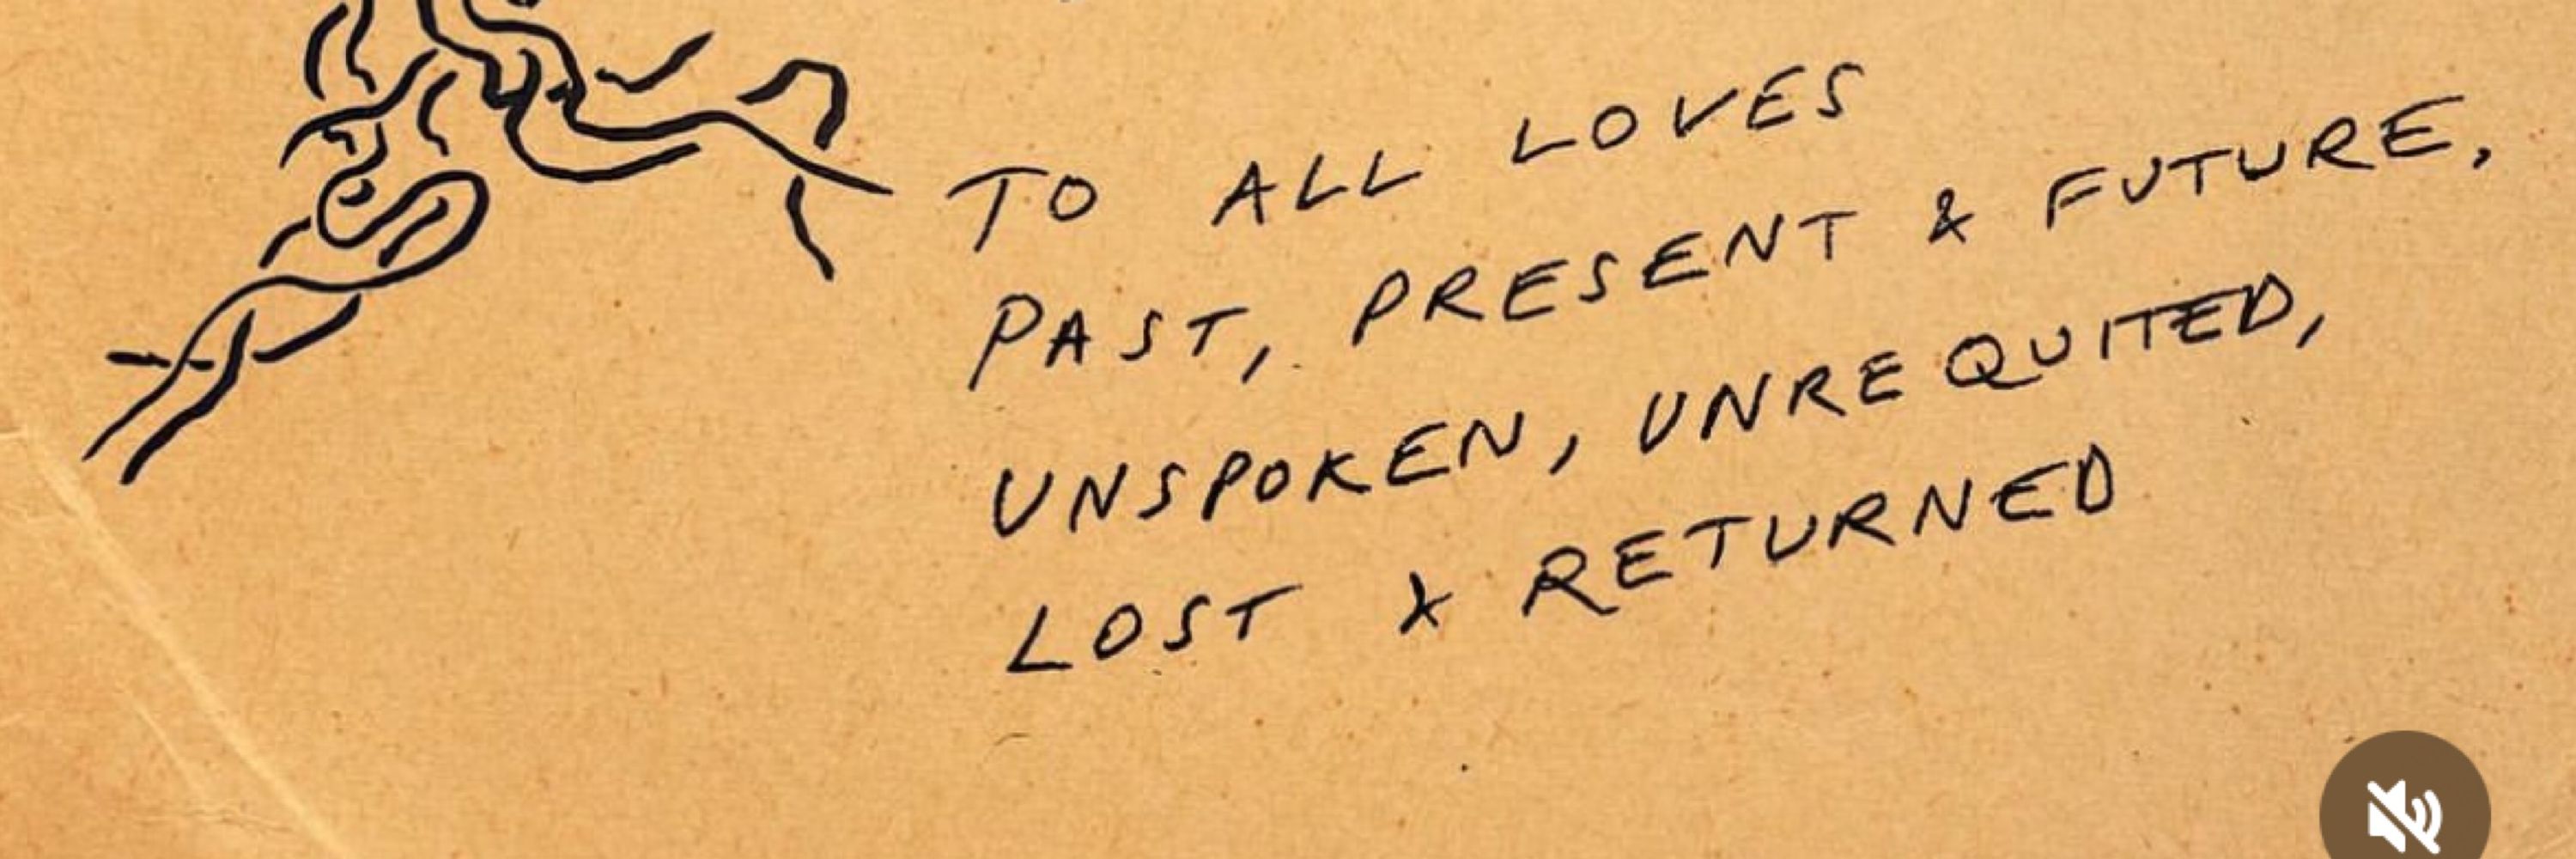 TO ALL LOVES
PAST, PRESENT & FUTURE,
UNSPOKEN, UNREQUITED,
LOST & RETURNED